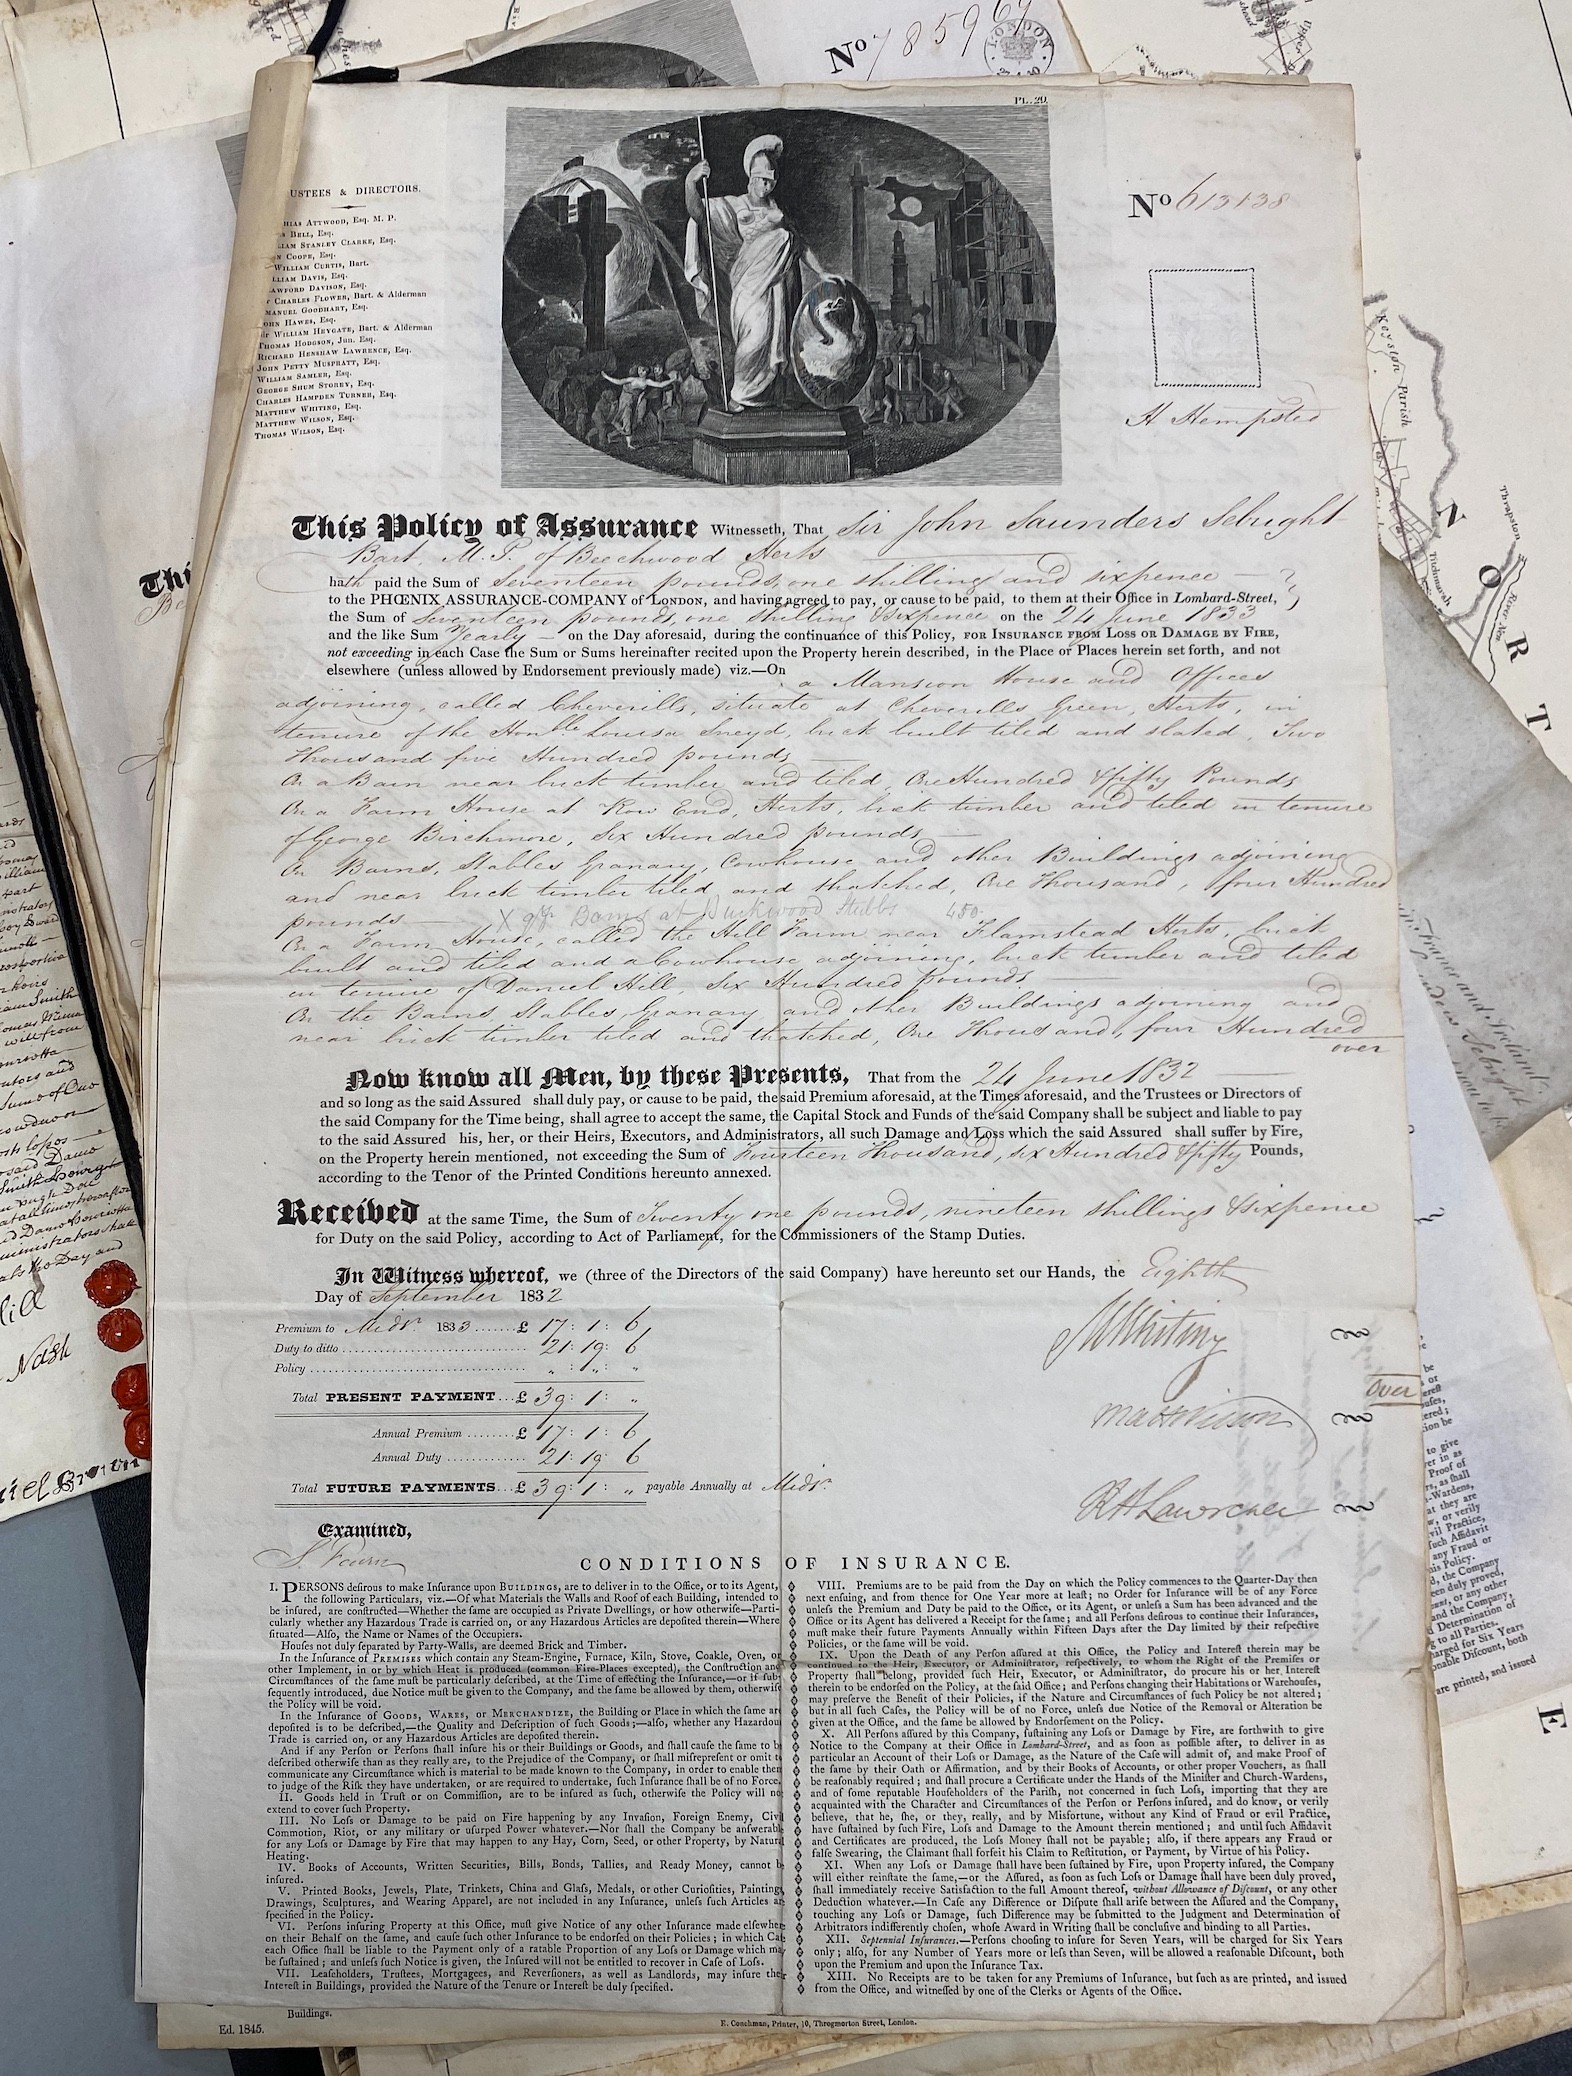 PL. 20.
No 785969
LONDON
USTEES & DIRECTORS.
HIAS ATTWOOD, Esq. M. P.
BELL, Esq.
LIAM STANLEY CLARKE, Esq.
N COOPE, Esq.
WILLIAM CURTIS, Bart.
LLIAM DAVIS, Esq.
AWFORD DAVISON, Esq.
CHARLES FLOWER, Bart. & Alderman
MANUEL GOODHART, Esq.
OHN HAWES, Esq.
ir WILLIAM HEYGATE, Bart. & Alderman
THOMAS HODGSON, Jun. Esq.
RICHARD HENSHAW LAWRENCE, Esq.
JOHN PETTY MUSPRATT, Esq.
WILLIAM SAMLER, Esq.
GEORGE SHUM STOREY, Esq.
CHARLES HAMPDEN TURNER, Esq.
MATTHEW WHITING, Esq.
MATTHEW WILSON, Esq.
THOMAS WILSON, Esq.
No 613138
H Hempsted
This Policy of Assurance Witnesseth, That Sir John Saunders Sebright
Bart. M.P. of Beechwood Herts
hath paid the Sum of Seventeen pounds, one shilling and sixpence
to the PHŒNIX ASSURANCE-COMPANY of LONDON, and having agreed to pay, or cause to be paid, to them at their Office in Lombard-Street,
the Sum of Seventeen pounds, one shilling & sixpence on the 24 June 1833
and the like Sum Yearly on the Day aforesaid, during the continuance of this Policy, FOR INSURANCE FROM LOSS OR DAMAGE BY FIRE,
not exceeding in each Case the Sum or Sums hereinafter recited upon the Property herein described, in the Place or Places herein set forth, and not
elsewhere (unless allowed by Endorsement previously made) viz.—On a Mansion House and Offices
adjoining, called Cheverills, situate at Cheverills Green, Herts, in
tenure of the Honble Sneyd, brick built tiled and slated, Two
Thousand five Hundred pounds
On a Barn near brick timber and tiled, One Hundred & fifty Pounds
On a Farm House at Row End, Herts, brick timber and tiled in tenure
of George Birchmore, Six Hundred pounds —
On Barns, Stables Granary, Cowhouse and other Buildings adjoining
and near brick timber tiled and thatched, One Thousand, four Hundred
pounds — X Barns at Stubbs 450.
On a Farm House, called the Hill Farm near Flamstead Herts, brick
built and tiled and a Cowhouse adjoining, brick timber and tiled
in tenure of Daniel Hill, Six Hundred pounds
On the Barns, Stables, Granary, and other Buildings adjoining and
near brick timber tiled and thatched, One Thousand, four Hundred
over
Now know all Men, by these Presents, That from the 24 June 1832
and so long as the said Assured shall duly pay, or cause to be paid, the said Premium aforesaid, at the Times aforesaid, and the Trustees or Directors of
the said Company for the Time being, shall agree to accept the same, the Capital Stock and Funds of the said Company shall be subject and liable to pay
to the said Assured his, her, or their Heirs, Executors, and Administrators, all such Damage and Loss which the said Assured shall suffer by Fire,
on the Property herein mentioned, not exceeding the Sum of Fourteen Thousand, six Hundred & fifty Pounds,
according to the Tenor of the Printed Conditions hereunto annexed.
Received at the same Time, the Sum of Twenty one pounds, nineteen shillings & sixpence
for Duty on the said Policy, according to Act of Parliament, for the Commissioners of the Stamp Duties.
In Witness whereof, we (three of the Directors of the said Company) have hereunto set our Hands, the Eighth
Day of September 1832
Premium to Midsr 1833 ....... £ 17 : 1 : 6
Duty to ditto ....... 21 : 19 : 6
Policy ....... „ : „ : „
Total PRESENT PAYMENT ... £ 39 : 1 : „
Annual Premium ........ £ 17 : 1 : 6
Annual Duty ............. 21 : 19 : 6
Total FUTURE PAYMENTS ... £ 39 : 1 : „ payable Annually at Midsr
M Whiting
Matt Wilson
R H Lawrence
over
Examined,
CONDITIONS OF INSURANCE.
I. PERSONS desirous to make Insurance upon BUILDINGS, are to deliver in to the Office, or to its Agent,
the following Particulars, viz.—Of what Materials the Walls and Roof of each Building, intended to
be insured, are constructed—Whether the same are occupied as Private Dwellings, or how otherwise—Parti-
cularly whether any Hazardous Trade is carried on, or any Hazardous Articles are deposited therein—Where
situated—Also, the Name or Names of the Occupiers.
Houses not duly separated by Party-Walls, are deemed Brick and Timber.
In the Insurance of PREMISES which contain any Steam-Engine, Furnace, Kiln, Stove, Coakle, Oven, or
other Implement, in or by which Heat is produced (common Fire-Places excepted), the Construction and
Circumstances of the same must be particularly described, at the Time of effecting the Insurance,—or if sub-
sequently introduced, due Notice must be given to the Company, and the same be allowed by them, otherwise
the Policy will be void.
In the Insurance of GOODS, WARES, or MERCHANDIZE, the Building or Place in which the same are
deposited is to be described,—the Quality and Description of such Goods;—also, whether any Hazardou
Trade is carried on, or any Hazardous Articles are deposited therein.
And if any Person or Persons shall insure his or their Buildings or Goods, and shall cause the same to b
described otherwise than as they really are, to the Prejudice of the Company, or shall misrepresent or omit t
communicate any Circumstance which is material to be made known to the Company, in order to enable them
to judge of the Risk they have undertaken, or are required to undertake, such Insurance shall be of no Force.
II. Goods held in Trust or on Commission, are to be insured as such, otherwise the Policy will no
extend to cover such Property.
III. No Loss or Damage to be paid on Fire happening by any Invasion, Foreign Enemy, Civil
Commotion, Riot, or any military or usurped Power whatever.—Nor shall the Company be answerabl
for any Loss or Damage by Fire that may happen to any Hay, Corn, Seed, or other Property, by Natural
Heating.
IV. Books of Accounts, Written Securities, Bills, Bonds, Tallies, and Ready Money, cannot b
insured.
V. Printed Books, Jewels, Plate, Trinkets, China and Glass, Medals, or other Curiosities, Paintings
Drawings, Sculptures, and Wearing Apparel, are not included in any Insurance, unless such Articles ar
specified in the Policy.
VI. Persons insuring Property at this Office, must give Notice of any other Insurance made elsewhere
on their Behalf on the same, and cause such other Insurance to be endorsed on their Policies; in which Cas
each Office shall be liable to the Payment only of a ratable Proportion of any Loss or Damage which may
be sustained; and unless such Notice is given, the Insured will not be entitled to recover in Case of Loss.
VII. Leaseholders, Trustees, Mortgagees, and Reversioners, as well as Landlords, may insure their
Interest in Buildings, provided the Nature of the Tenure or Interest be duly specified.
VIII. Premiums are to be paid from the Day on which the Policy commences to the Quarter-Day then
next ensuing, and from thence for One Year more at least; no Order for Insurance will be of any Force
unless the Premium and Duty be paid to the Office, or its Agent, or unless a Sum has been advanced and the
Office or its Agent has delivered a Receipt for the same; and all Persons desirous to continue their Insurances,
must make their future Payments Annually within Fifteen Days after the Day limited by their respective
Policies, or the same will be void.
IX. Upon the Death of any Person assured at this Office, the Policy and Interest therein may be
continued to the Heir, Executor, or Administrator, respectively, to whom the Right of the Premises or
Property shall belong, provided such Heir, Executor, or Administrator, do procure his or her Interest
therein to be endorsed on the Policy, at the said Office; and Persons changing their Habitations or Warehouses,
may preserve the Benefit of their Policies, if the Nature and Circumstances of such Policy be not altered;
but in all such Cases, the Policy will be of no Force, unless due Notice of the Removal or Alteration be
given at the Office, and the same be allowed by Endorsement on the Policy.
X. All Persons assured by this Company, sustaining any Loss or Damage by Fire, are forthwith to give
Notice to the Company at their Office in Lombard-Street, and as soon as possible after, to deliver in as
particular an Account of their Loss or Damage, as the Nature of the Case will admit of, and make Proof of
the same by their Oath or Affirmation, and by their Books of Accounts, or other proper Vouchers, as shall
be reasonably required; and shall procure a Certificate under the Hands of the Minister and Church-Wardens,
and of some reputable Householders of the Parish, not concerned in such Loss, importing that they are
acquainted with the Character and Circumstances of the Person or Persons insured, and do know, or verily
believe, that he, she, or they, really, and by Misfortune, without any Kind of Fraud or evil Practice,
have sustained by such Fire, Loss and Damage to the Amount therein mentioned; and until such Affidavit
and Certificates are produced, the Loss Money shall not be payable; also, if there appears any Fraud or
false Swearing, the Claimant shall forfeit his Claim to Restitution, or Payment, by Virtue of his Policy.
XI. When any Loss or Damage shall have been sustained by Fire, upon Property insured, the Company
will either reinstate the same,—or the Assured, as soon as such Loss or Damage shall have been duly proved,
shall immediately receive Satisfaction to the full Amount thereof, without Allowance of Discount, or any other
Deduction whatever.—In Case any Difference or Dispute shall arise between the Assured and the Company,
touching any Loss or Damage, such Difference may be submitted to the Judgment and Determination of
Arbitrators indifferently chosen, whose Award in Writing shall be conclusive and binding to all Parties.
XII. Septennial Insurances.—Persons choosing to insure for Seven Years, will be charged for Six Years
only; also, for any Number of Years more or less than Seven, will be allowed a reasonable Discount, both
upon the Premium and upon the Insurance Tax.
XIII. No Receipts are to be taken for any Premiums of Insurance, but such as are printed, and issued
from the Office, and witnessed by one of the Clerks or Agents of the Office.
Buildings.
Ed. 1845.
E. Couchman, Printer, 10, Throgmorton Street, London.
Keyston Parish
Titchmarsh
Thrapston
River Nen
N
O
R
T
E
Thi
Be
Nash